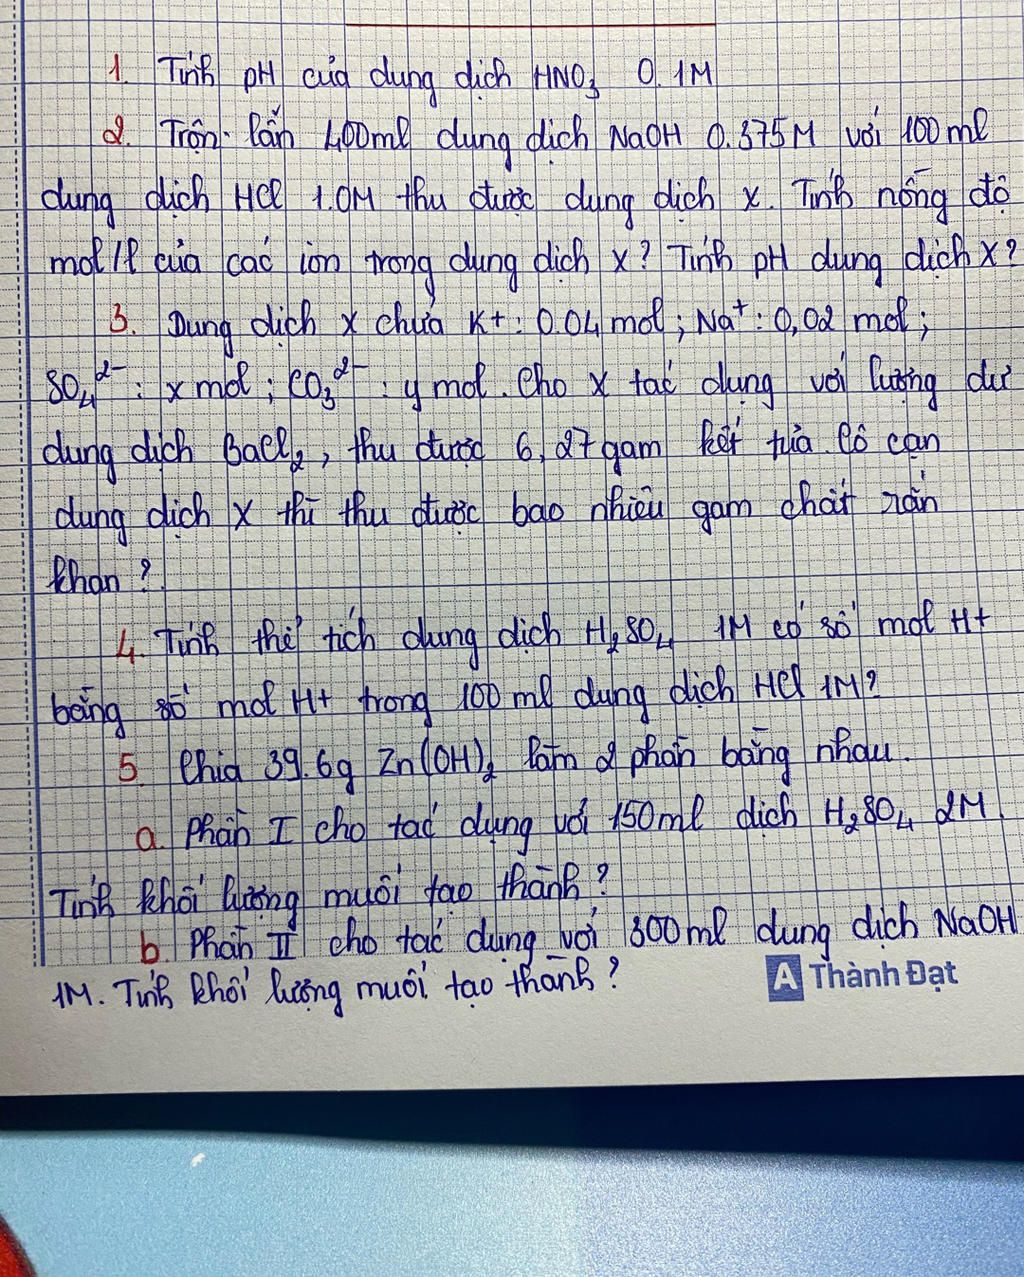 1. Tính pH của dung dịch HNO₃ 0.1M
2. Trộn lẫn 400ml dung dịch NaOH 0.375M với 100ml
dung dịch HCl 1.0M thu được dung dịch x. Tính nồng độ
mol/l của các ion trong dung dịch x? Tính pH dung dịch x?
3. Dung dịch x chứa K+: 0.04 mol; Na⁺: 0,02 mol;
SO₄²⁻: x mol; CO₃²⁻: y mol. Cho x tác dụng với lượng dư
dung dịch BaCl₂, thu được 6,27 gam kết tủa. Cô cạn
dung dịch x thì thu được bao nhiêu gam chất rắn
khan?
4. Tính thể tích dung dịch H₂SO₄ 1M có số mol H+
bằng số mol H+ trong 100 ml dung dịch HCl 1M?
5. Chia 39.6g Zn(OH)₂ làm 2 phần bằng nhau.
a. Phần I cho tác dụng với 150ml dịch H₂SO₄ 2M.
Tính khối lượng muối tạo thành?
b. Phần II cho tác dụng với 300ml dung dịch NaOH
1M. Tính khối lượng muối tạo thành?
A Thành Đạt